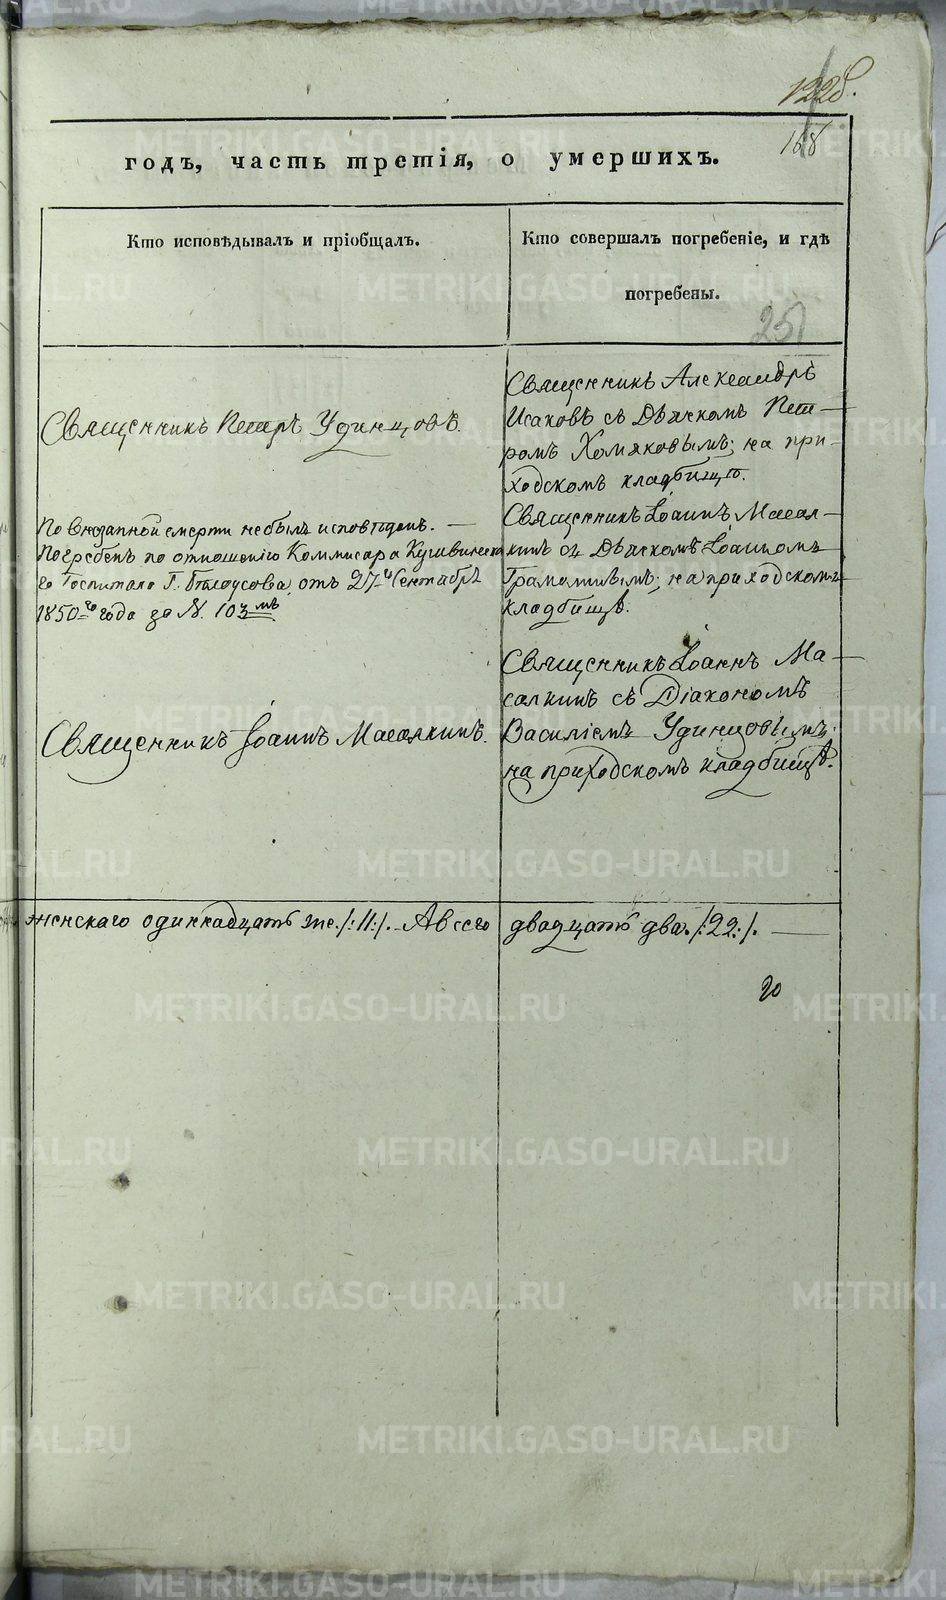 1228.
168
годъ, часть третія, о умершихъ.
Кто исповѣдывалъ и пріобщалъ.
Кто совершалъ погребеніе, и гдѣ
погребены.
251
Священникъ Петръ Удинцовъ.
Священникъ Александръ
Исаковъ съ Дьячкомъ Пет-
ромъ Хомяковымъ; на при-
ходскомъ кладбищѣ.
По внезапной смерти небылъ исповѣданъ. —
Погребенъ по отношенію Коммисара Кушвинска
го Госпиталя Г. Бѣлоусова, отъ 27го Сентабря
1850го года за №. 103мъ
Священникъ Іоаннъ Масал-
кинъ съ Дьячкомъ Іоанномъ
Грамотинымъ; на приходскомъ
кладбищѣ.
Священникъ Іоаннъ Масалкинъ.
Священникъ Іоаннъ Ма-
салкинъ съ Діакономъ
Василіемъ Удинцовымъ;
на приходскомъ кладбищѣ.
женскаго одиннадцать же /:11:/. А всего двадцать два /:22:/. —
METRIKI.GASO-URAL.RU